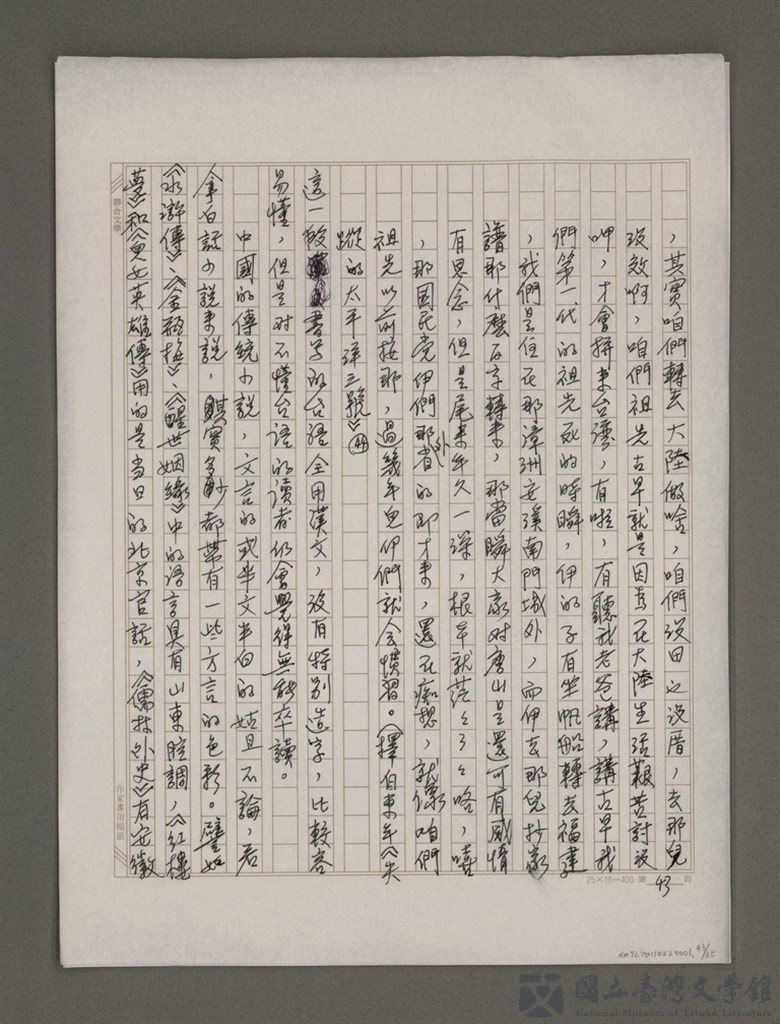 ，其實咱們轉去大陸做啥，咱們沒田也沒厝，去那兒
沒效啊，咱們祖先古早就是因為在大陸生活艱苦討沒
呷，才會拚來台灣，有啦，有聽我老爸講，講古早我
們第一代的祖先死的時瞬，伊的子有坐帆船轉去福建
，我們是住在那漳洲安溪南門城外，而伊去那兒抄家
譜那什麼百字轉來，那當瞬大家對唐山是還可有感情
有思念，但是尾來年久一深，根本就茫々了々咯，嘻
，那国民党伊們那外省的那才來，還在痴想，就像咱們
祖先以前按那，過幾年兒伊們就会慣習。（擇自東年《失
蹤的太平洋三號》㊹
這一般書寫的台語全用漢文，沒有特別造字，比較容
易懂，但是对不懂台語的读者仍會覺得無能卒讀。
中國的傳統小說，文言的或半文半白的姑且不論，若
拿白話小說來說，其實多少都帶有一些方言的色彩。譬如
《水滸傳》、《金瓶梅》、《醒世姻緣》中的语言具有山東腔調，《紅樓
夢》和《兒女英雄傳》用的是当日的北京官話，《儒林外史》有安徽
聯合文學
作家專用稿紙
25×16=400 第 43 頁
43/85
國立臺灣文學館
National Museum of Taiwan Literature